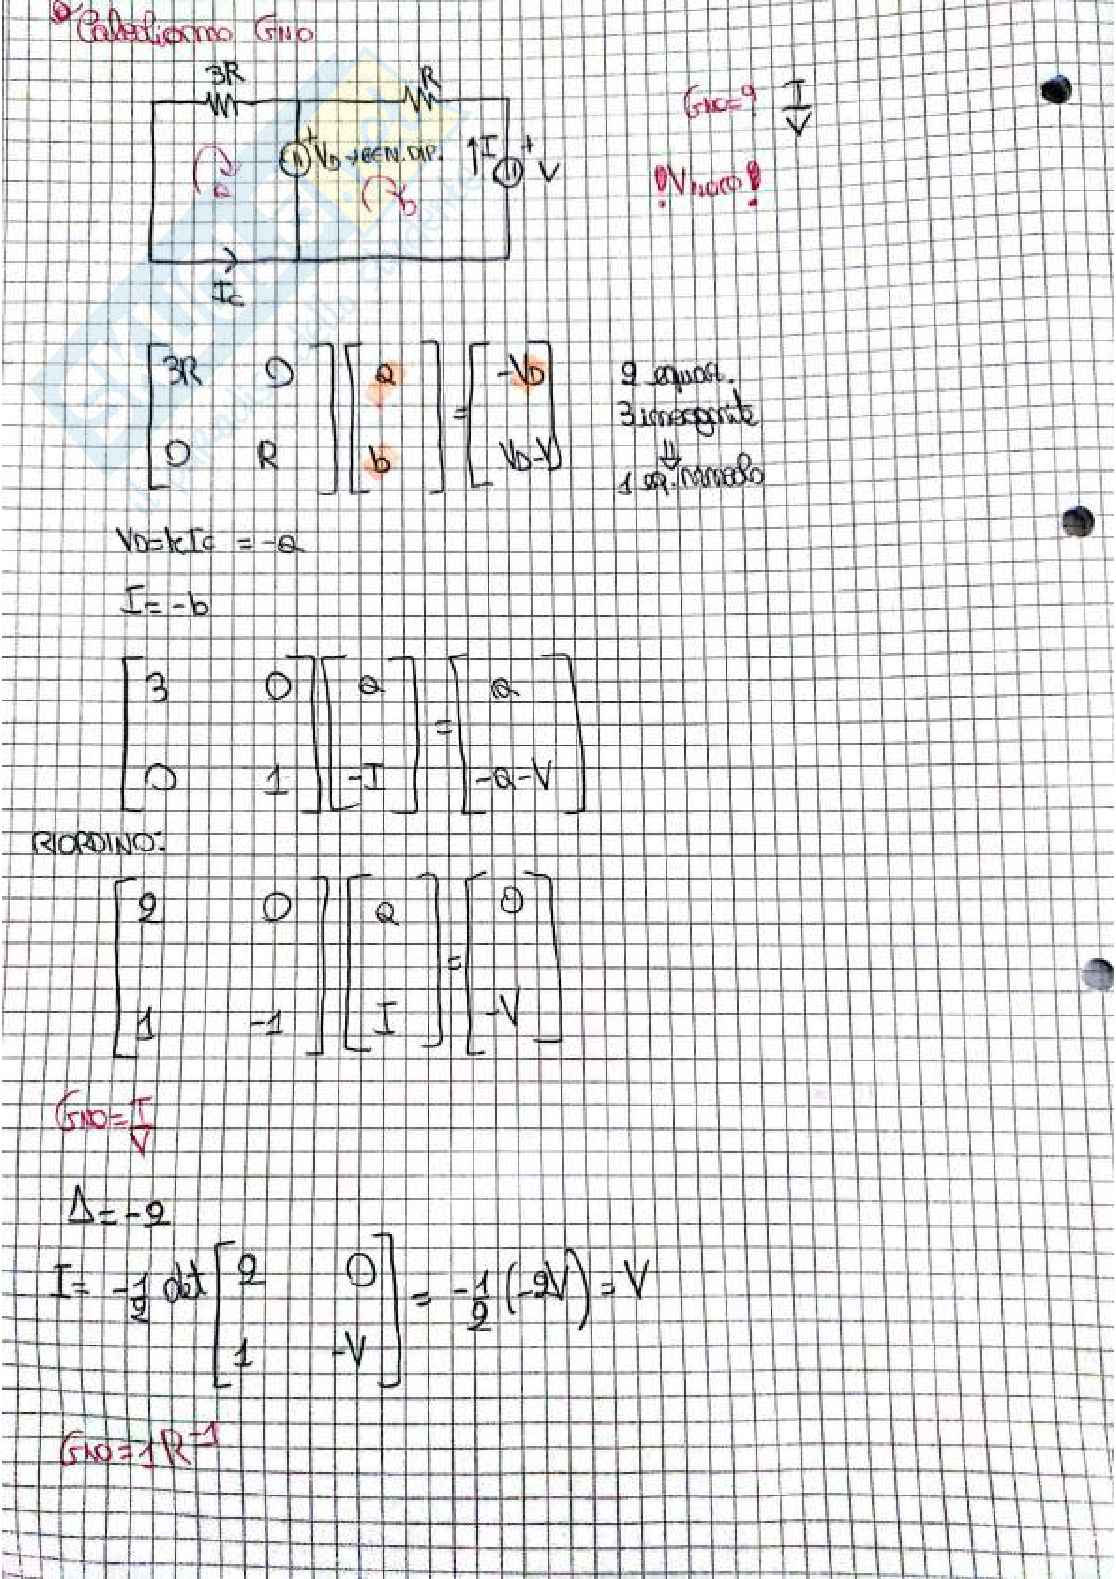 Calcoliamo GNO
3R R
GNO=? I/V
+ VD → GEN. DIP. I + V
a b
!V noto!
Ic
[3R 0; 0 R] [a; b] = [-VD; VD-V]
2 equaz.
3 incognite
⇓
1 eq. vincolo
VD=kIc = -a
I = -b
[3 0; 0 1] [a; -I] = [a; -a-V]
RIORDINO:
[2 0; 1 -1] [a; I] = [0; -V]
GNO = I/V
Δ = -2
I = -1/2 det [2 0; 1 -V] = -1/2 (-2V) = V
GNO = 1R^-1